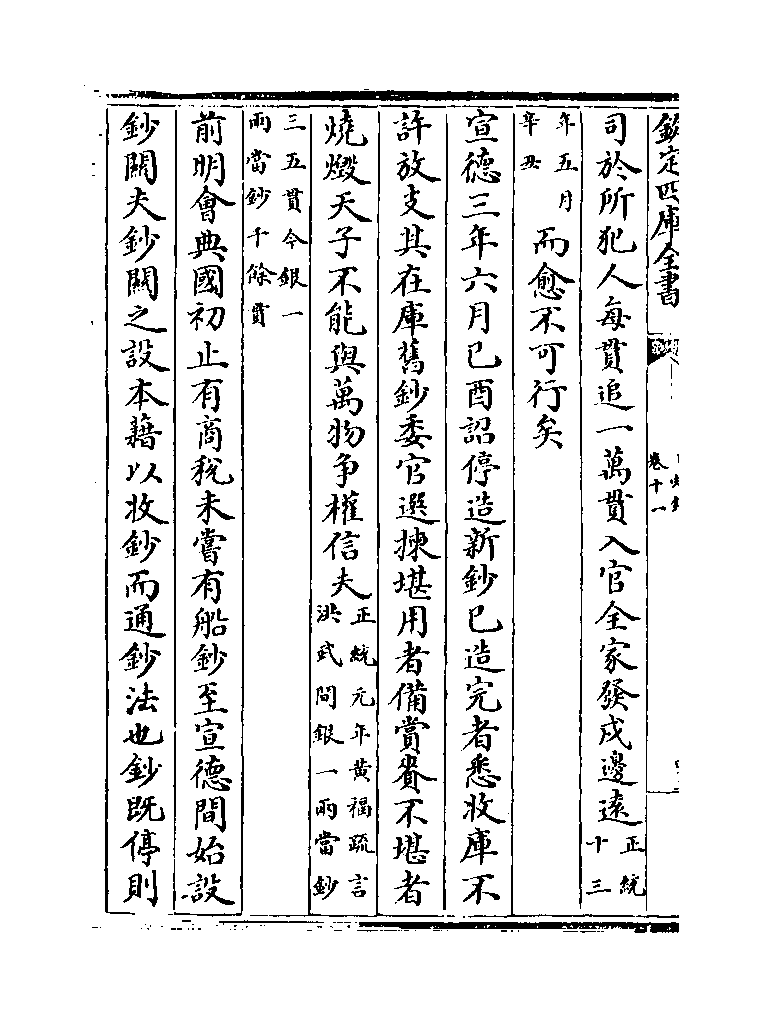 欽定四庫全書
卷十一
司於所犯人每貫追一萬貫入官全家發戍邊逺正統十三
年五月辛丑而愈不可行矣
宣徳三年六月己酉詔停造新鈔已造完者悉收庫不
許放支其在庫舊鈔委官選揀堪用者備賞賚不堪者
燒燬天子不能與萬物争權信夫正統元年黄福疏言洪武間銀一兩當鈔
三五貫今銀一兩當鈔千餘貫
前明會典國初止有商稅未嘗有船鈔至宣德間始設
鈔闗夫鈔闗之設本藉以收鈔而通鈔法也鈔既停則